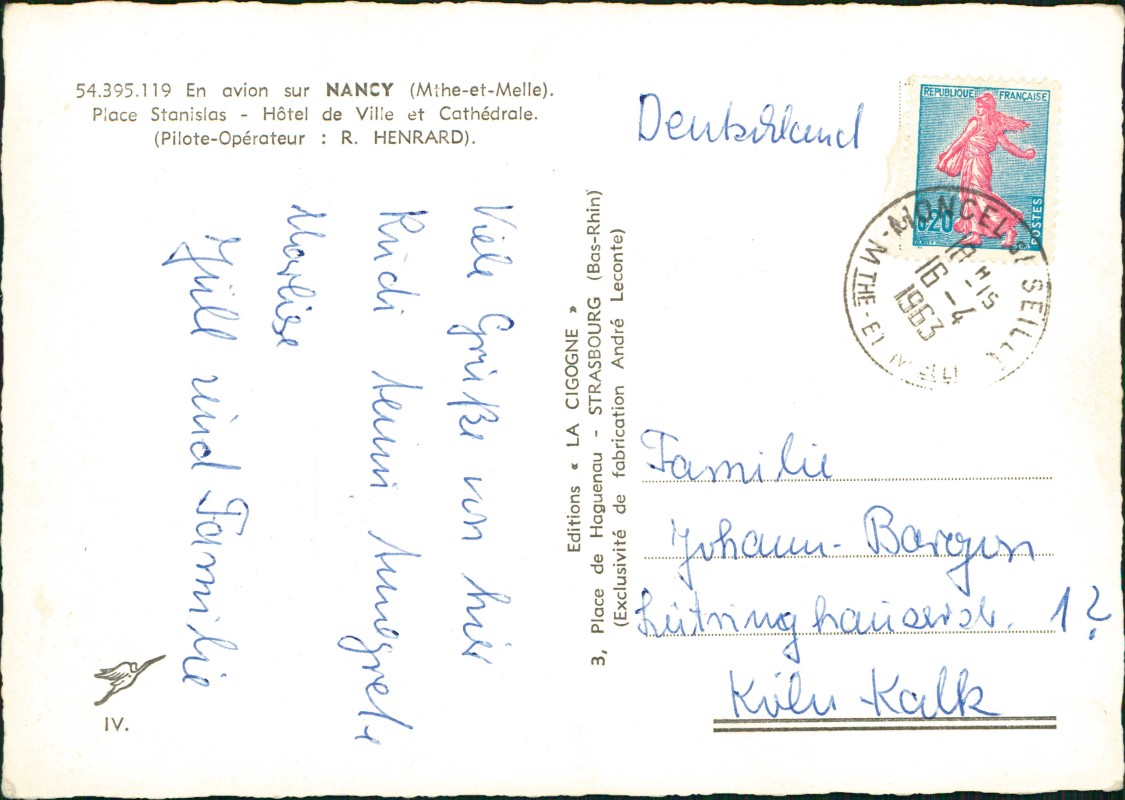 54.395.119 En avion sur NANCY (Mthe-et-Melle).
Place Stanislas - Hôtel de Ville et Cathédrale.
(Pilote-Opérateur : R. HENRARD).
Viele Grüße von hier
Rudi
Marliese
Jüll und Familie
IV.
Editions « LA CIGOGNE »
3, Place de Haguenau - STRASBOURG (Bas-Rhin)
(Exclusivité de fabrication André Leconte)
Deutschland
REPUBLIQUE FRANÇAISE
0,20
POSTES
MONCEL S/ SEILLE
MTHE-ET-MELLE
18 H 15
16 - 4
1963
Familie
Johann
Köln-Kalk